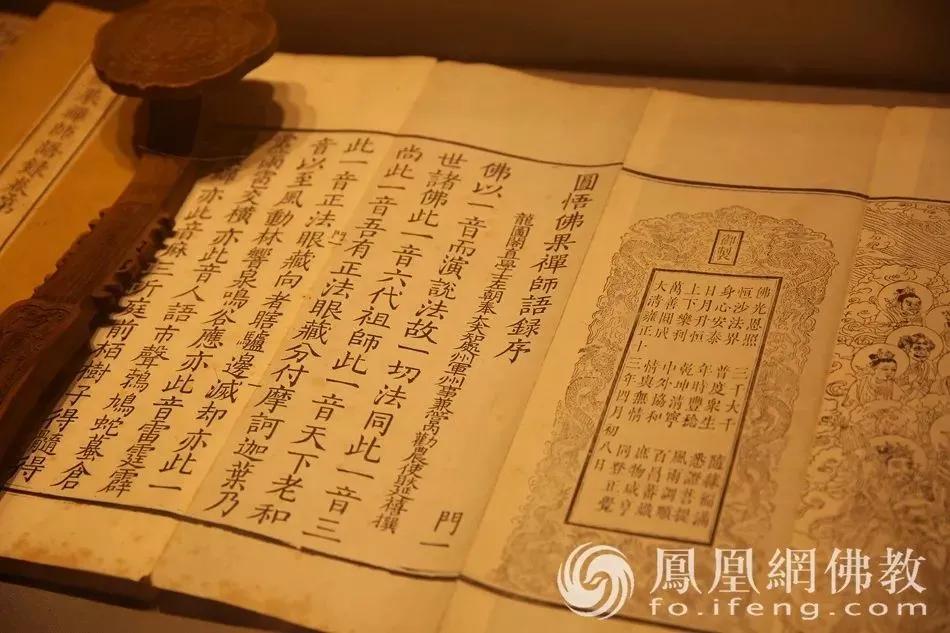 御製
佛光恩照 三千大千 隨緣福滿
恒沙法界 普度眾生 悉證菩提
身心安泰 年時豐稔 風雨調順
日月升恒 乾坤清寧 百昌蕃熾
上下樂利 中外協和 庶物咸亨
萬善圓成 情與無情 同登正覺
大清雍正十三年四月初八日
圜悟佛果禪師語錄序 門一
龍圖閣直學士左朝奉大夫知州軍州事兼管內勸農使耿延禧撰
佛以一音而演說法故一切法同此一音三
世諸佛此一音六代祖師此一音天下老和
尚此一音吾有正法眼藏分付摩訶迦葉乃
此一音正法眼藏向者瞎驢邊滅却亦此一
門
音以至風動林響泉鳴谷應亦此音雷霆霹
靂雨雹交橫亦此音人語市聲鵶鳩蛇蝱倉
亦此音麻三斤庭前柏樹子得髓得
果禪師語錄卷第
鳳凰網佛教
fo.ifeng.com